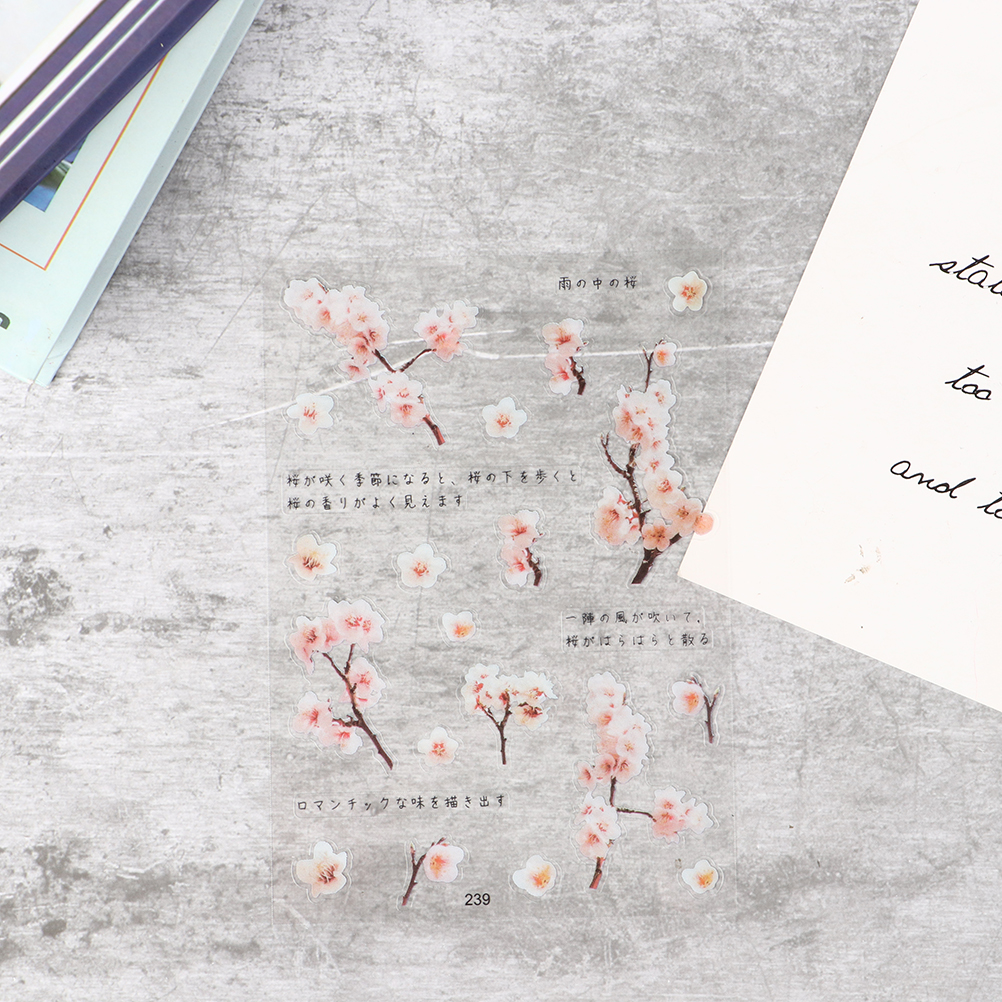 雨の中の桜
桜が咲く季節になると、桜の下を歩くと
桜の香りがよく見えます
一陣の風が吹いて、
桜がはらはらと散る
ロマンチックな味を描き出す
239
too
and